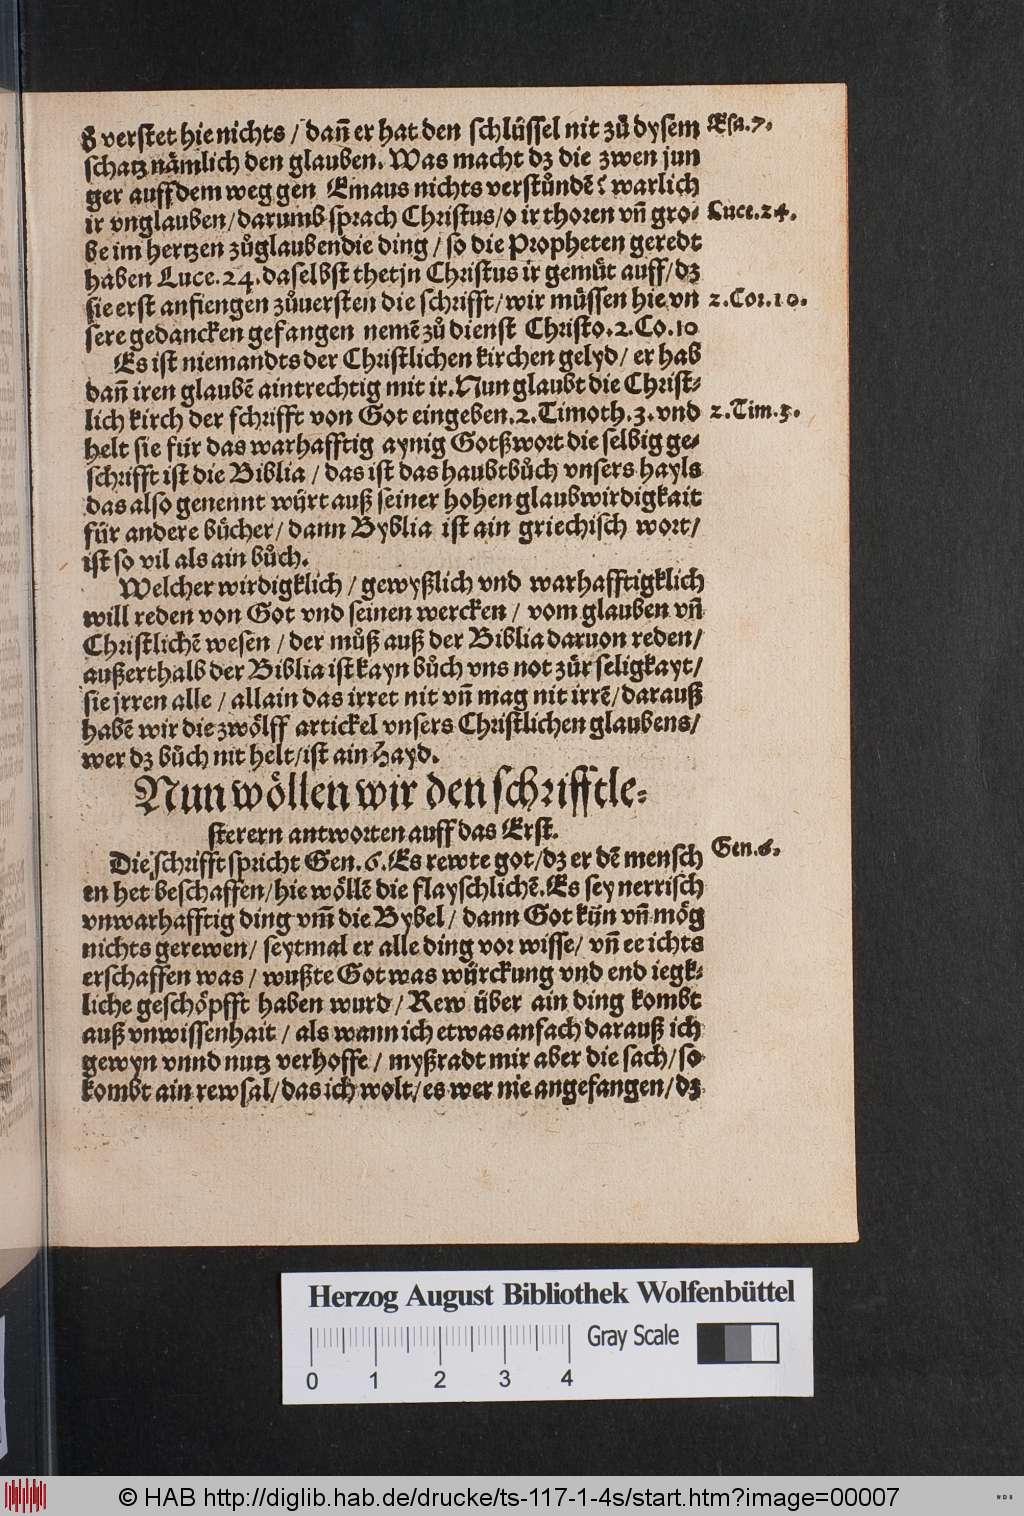 d̕ verstet hie nichts / dañ er hat den schlüssel nit zů dysem
Esa. 7.
schatz nämlich den glauben. Was macht dz die zwen jun
ger auff dem weg gen Emaus nichts verstůndē? warlich
ir vnglauben / darumb sprach Christus / o ir thoren vñ gro⸗
Luce. 24.
be im hertzen zůglauben die ding / so die Propheten geredt
haben Luce. 24. daselbst thet jn Christus ir gemüt auff / dz
sie erst anfiengen zůuersten die schrifft / wir müssen hie vn
2. Cor. 10.
sere gedancken gefangen nemē zů dienst Christo. 2. Co. 10
Es ist niemandts der Christlichen kirchen gelyd / er hab
dañ iren glaubē aintrechtig mit ir. Nun glaubt die Christ⸗
lich kirch der schrifft von Got eingeben. 2. Timoth. 3. vnd
2. Tim. 3.
helt sie für das warhafftig aynig Gotßwort die selbig ge⸗
schrifft ist die Biblia / das ist das haubtbůch vnsers hayls
das also genennt würt auß seiner hohen glaubwirdigkait
für andere bücher / dann Byblia ist ain griechisch wort /
ist so vil als ain bůch.
Welcher wirdigklich / gewyßlich vnd warhafftigklich
will reden von Got vnd seinen wercken / vom glauben vñ
Christlichē wesen / der můß auß der Biblia daruon reden /
außerthalb der Biblia ist kayn bůch vns not zůr seligkayt /
sie jrren alle / allain das irret nit vñ mag nit irrē / darauß
habē wir die zwölff artickel vnsers Christlichen glaubens /
wer dz bůch nit helt / ist ain Hayd.
Nun wöllen wir den schrifftle⸗
sterern antworten auff das Erst.
Die schrifft spricht Gen. 6. Es rewte got / dz er dē mensch
Gen. 6.
en het beschaffen / hie wöllē die flayschlichē. Es sey nerrisch
vnwarhafftig ding vm̄ die Bybel / dann Got kün vñ mög
nichts gerewen / seytmal er alle ding vor wisse / vñ ee ichts
erschaffen was / wußte Got was würckung vnd end iegk⸗
liche geschöpfft haben wurd / Rew über ain ding kombt
auß vnwissenhait / als wann ich etwas anfach darauß ich
gewyn vnnd nutz verhoffe / myßradt mir aber die sach / so
kombt ain rewsal / das ich wolt / es wer nie angefangen / dz
Herzog August Bibliothek Wolfenbüttel
Gray Scale
0 1 2 3 4
© HAB http://diglib.hab.de/drucke/ts-117-1-4s/start.htm?image=00007